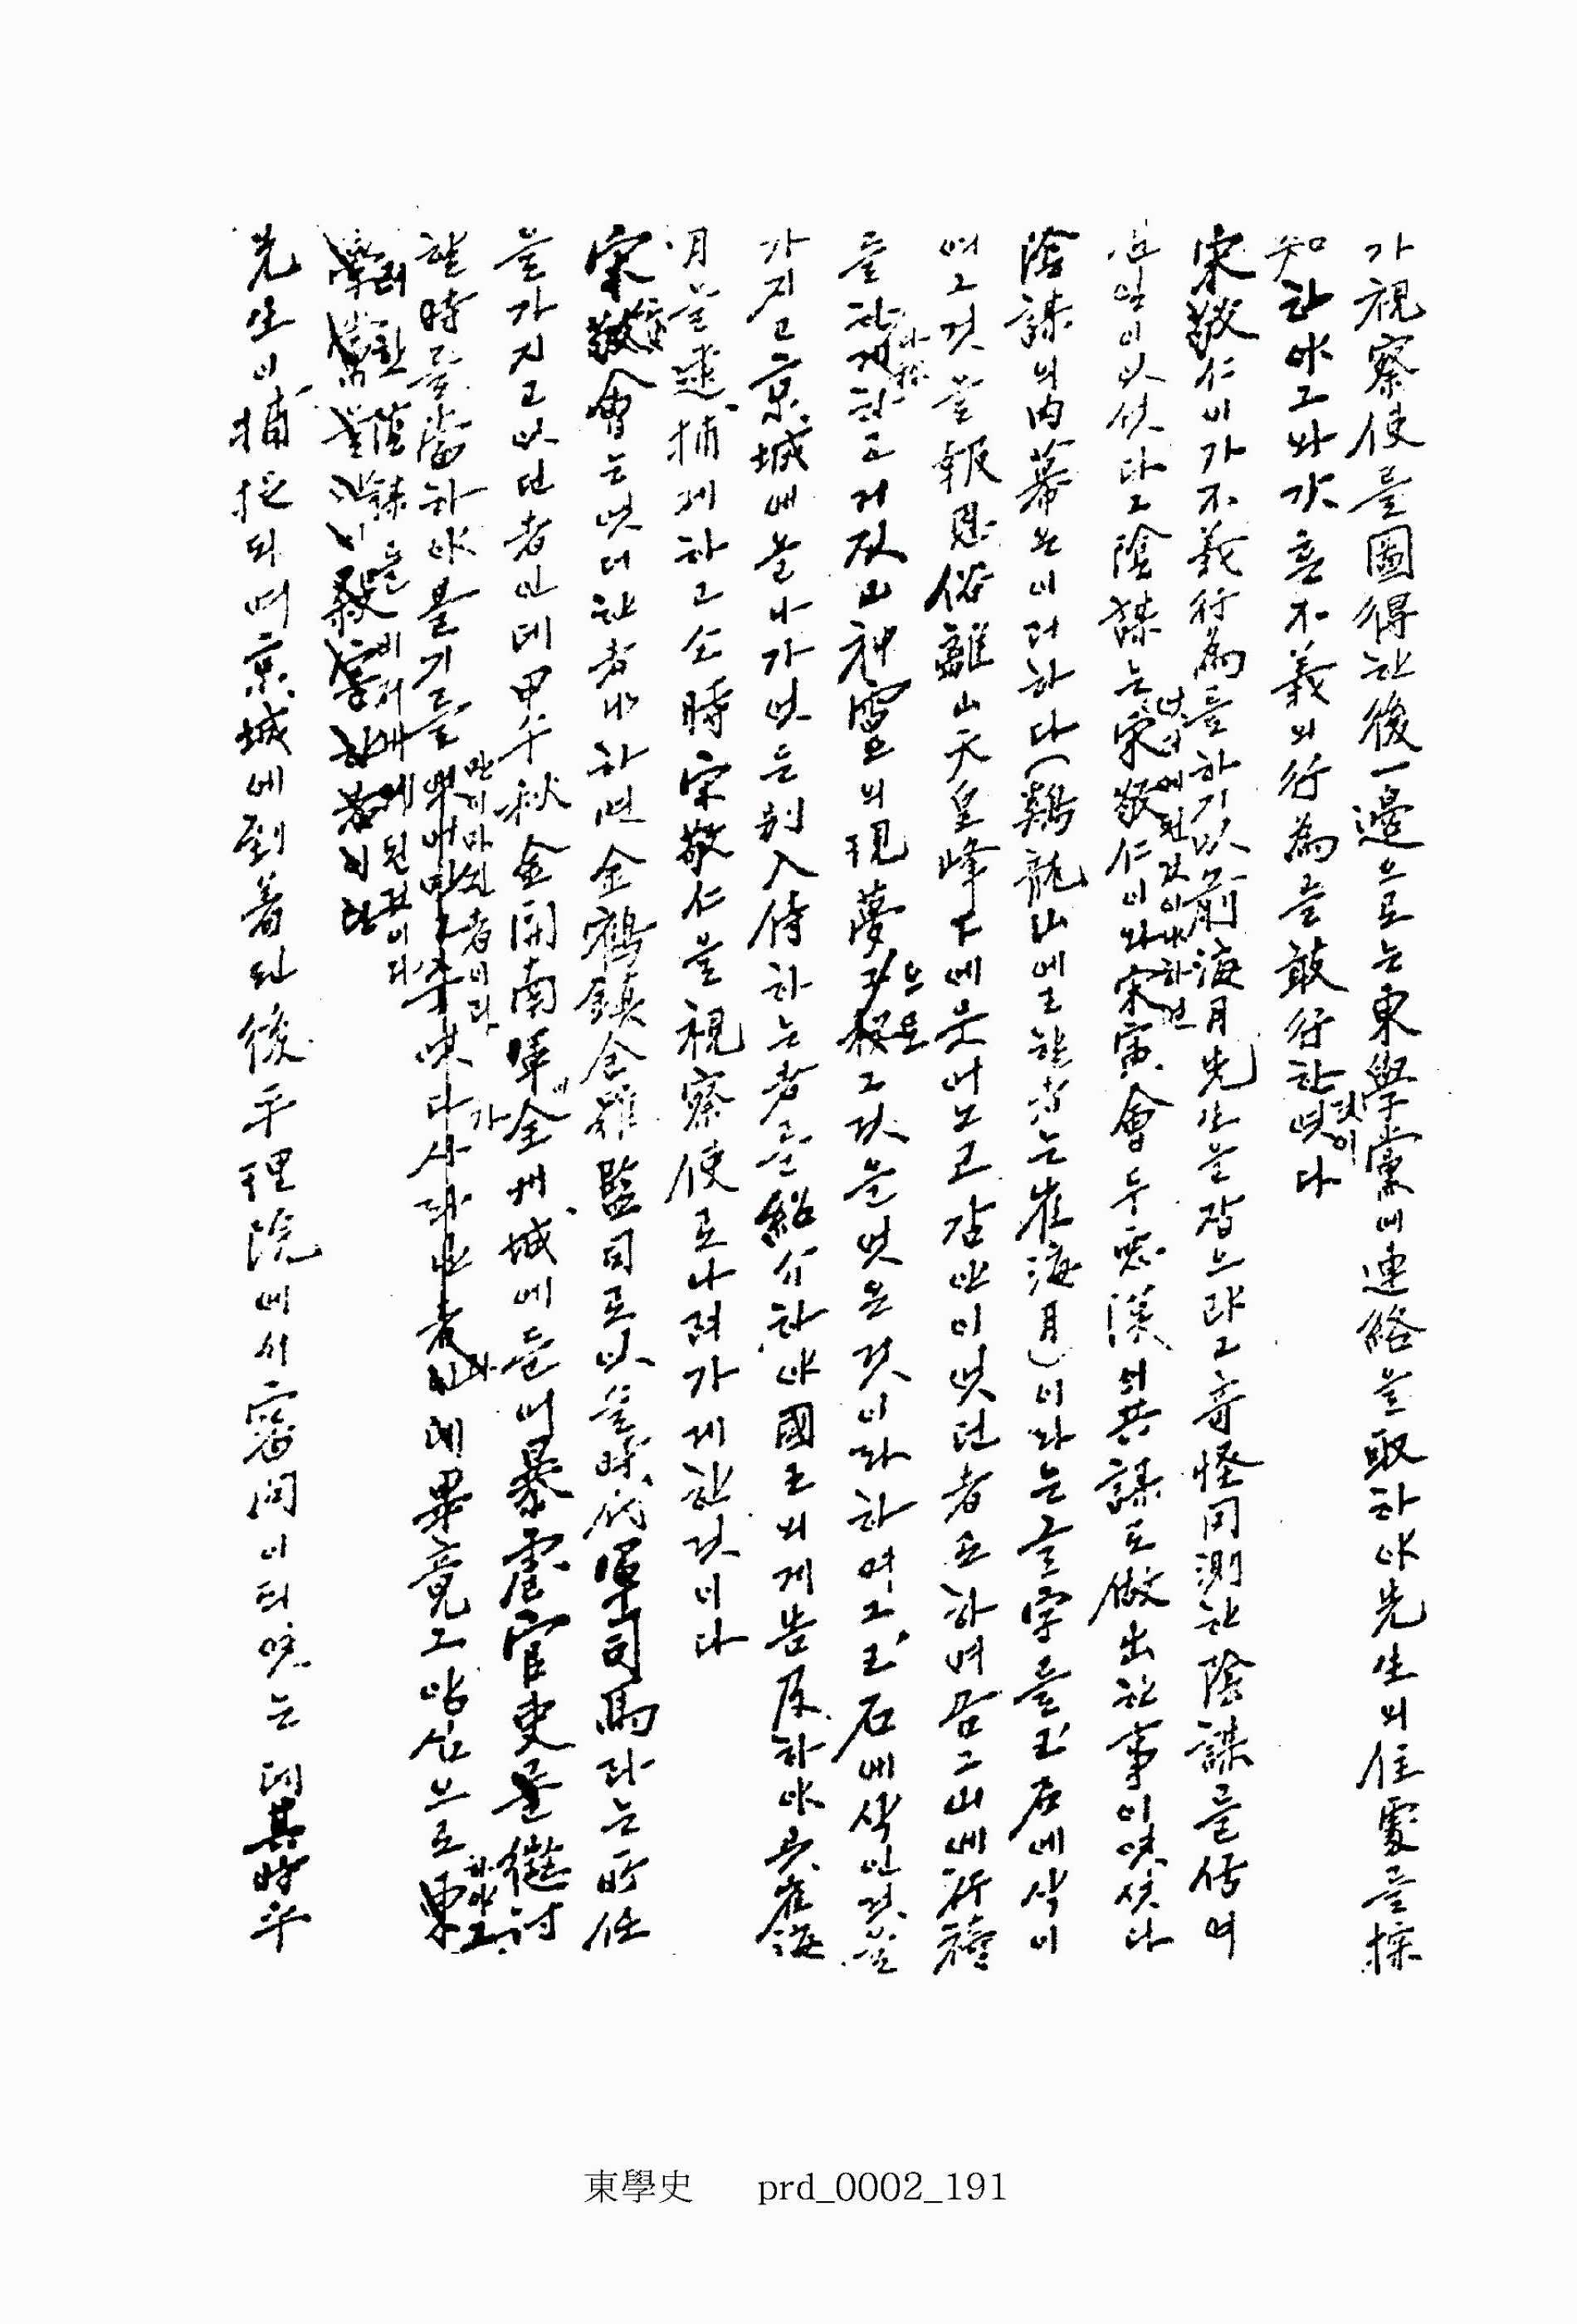 가視察使를圖得한後一邊으로는東學黨에連絡을取하야先生의住處를探
知하야그와갓흔不義의行爲를敢行한것이엿다
宋敬仁이가不義行爲를하기以前海月先生을잡으랴고奇怪罔測한陰謀를하여
일이잇섯다그陰謀는엇더케된것이냐하면宋敬仁이와宋寅會두惡漢의共謀로做出한事이엿섯다
陰謀의內幕은이러하다(鷄龍山에글한者는崔海月)이라는글字를玉石에삭이
여그것을報恩俗離山天皇峰下에무더노코잠안이엿던者로하며금그山에祈禱
를하게하고거짓山神靈의現夢으로그것을엇은것이라하여그玉石에삭인것을
가지고京城에올나가잇는別入侍하는者를紹介하야國王의게告及하야崔海
月을逮捕케하고그時宋敬仁을視察使로나려가게한것이다
宋寅會는엇더한者냐하면金鶴鎭全羅監司로잇을時代軍司馬라는所任
을가지고잇던者인데甲午秋金開南軍에全州城에들어暴虐官吏를懲討하고
할時를當하야붙기를만히마진者이라가畢竟그앙심으로東
이러한陰謀를비저내게된것이다
先生이捕捉되여京城에到着된後平理院에서審問이되엿는대其時平